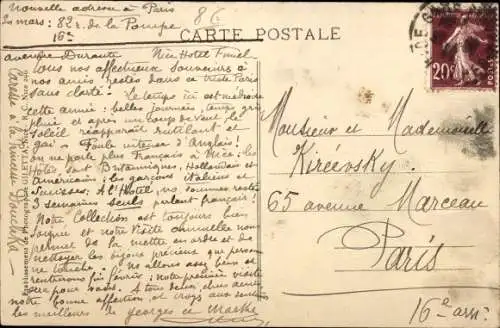 Nouvelle adresse à Paris
mars: 82 r. de la Pompe
16e
86
CARTE POSTALE
20c
avenue Durante Nice Hotel
tous nos affectueux souvenirs à
nos amis restés dans ce triste Paris
sans clarté! Le temps ici est médiocre
cette année: belles journées, temps gris
pluie et après un coup de vent le
soleil réapparaît rutilant et
gai - Foule intense d'Anglais!
on ne parle plus Français à Nice; les
Hotels sont Britanniques, Hollandais et
américains; les garçons italiens et
Suisses; à l'Hotel, ns sommes restés
3 semaines seuls parlant français!
Notre Collection est toujours bien
et notre visite annuelle nous
permet de la mettre en ordre et de
nettoyer les bijoux précieux que personne
ne touche. Ns allons assez bien et
rentrerons fin février; notre première visite
sera pour vous. A tous deux, chers amis
notre bonne affection et croyez aux sentiments
les meilleurs de Georges et Marthe
Monsieur et Mademoiselle
Kiréevsky
65 avenue Marceau
Paris
16e arrt
Etablissement de Photographie GILETTA, Nice